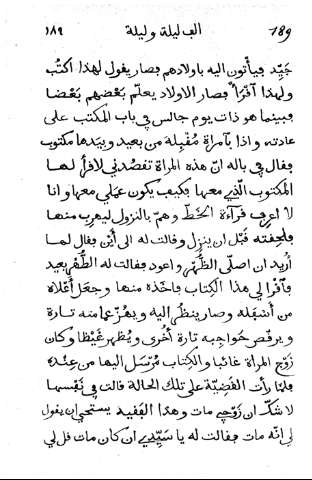 189 الف ليلة وليلة ١٨٩
جَيِّد فيأتون اليه باولادهم فصار يقول لهذا اكتُب
ولهذا آقرَأْ فصار الاولاد يعلّم بَعْضهم بَعْضا
فبينما هو ذات يوم جالس في باب المكتب على
عادته واذا بآمراة مُقْبِلة من بعيد وبيَدها مكتوب
فقال في باله انّ هذه المراة تقصُدني لاقرأ لها
المكتوب الّذي معها فكيف يكون عملي معها وانا
لا اعرِف قرآءة الخَطّ وهَمّ بالنزول ليهرب منها
فلحِقته قَبْل ان ينزل وقالت له الى أَيْن فقال لها
أُريد ان اصلّي الظُّهر واعود فقالت له الظُّهر بعيد
فآقرا لي هذا الكِتاب فاخذه منها وجعل أَعْلاه
من أَسْفله وصار ينظر اليه ويهُزّ عِمامته تارة
ويرقّص حواجبه تارة أُخرى ويُظهر غَيْظا وكان
زَوْج المراة غائبا والكِتاب مُرْسَل اليها من عِنْده
فلمّا رأت القَضيّة على تلك الحالة قالت في نَفْسها
لا شَكّ ان زَوْجي مات وهذا الفَقيه يستحي ان يقول
لي انّه مات فقالت له يا سيّدي ان كان مات قل لي